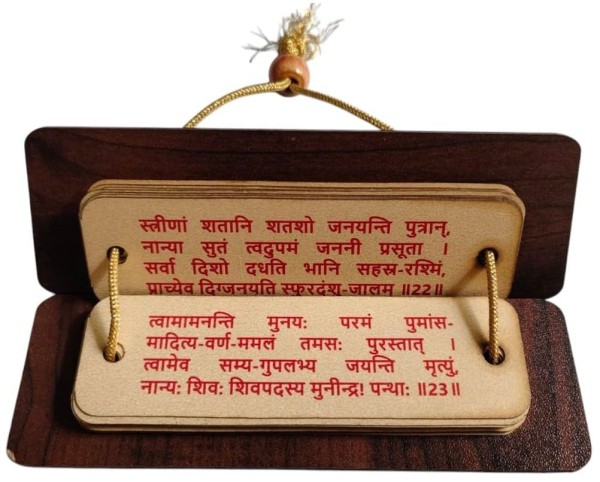 स्त्रीणां शतानि शतशो जनयन्ति पुत्रान्,
नान्या सुतं त्वदुपमं जननी प्रसूता ।
सर्वा दिशो दधति भानि सहस्र-रश्मिं,
प्राच्येव दिग्जनयति स्फुरदंशु-जालम् ॥22॥
त्वामामनन्ति मुनयः परमं पुमांस-
मादित्य-वर्ण-ममलं तमसः पुरस्तात् ।
त्वामेव सम्य-गुपलभ्य जयन्ति मृत्युं,
नान्यः शिवः शिवपदस्य मुनीन्द्र! पन्थाः ॥23॥